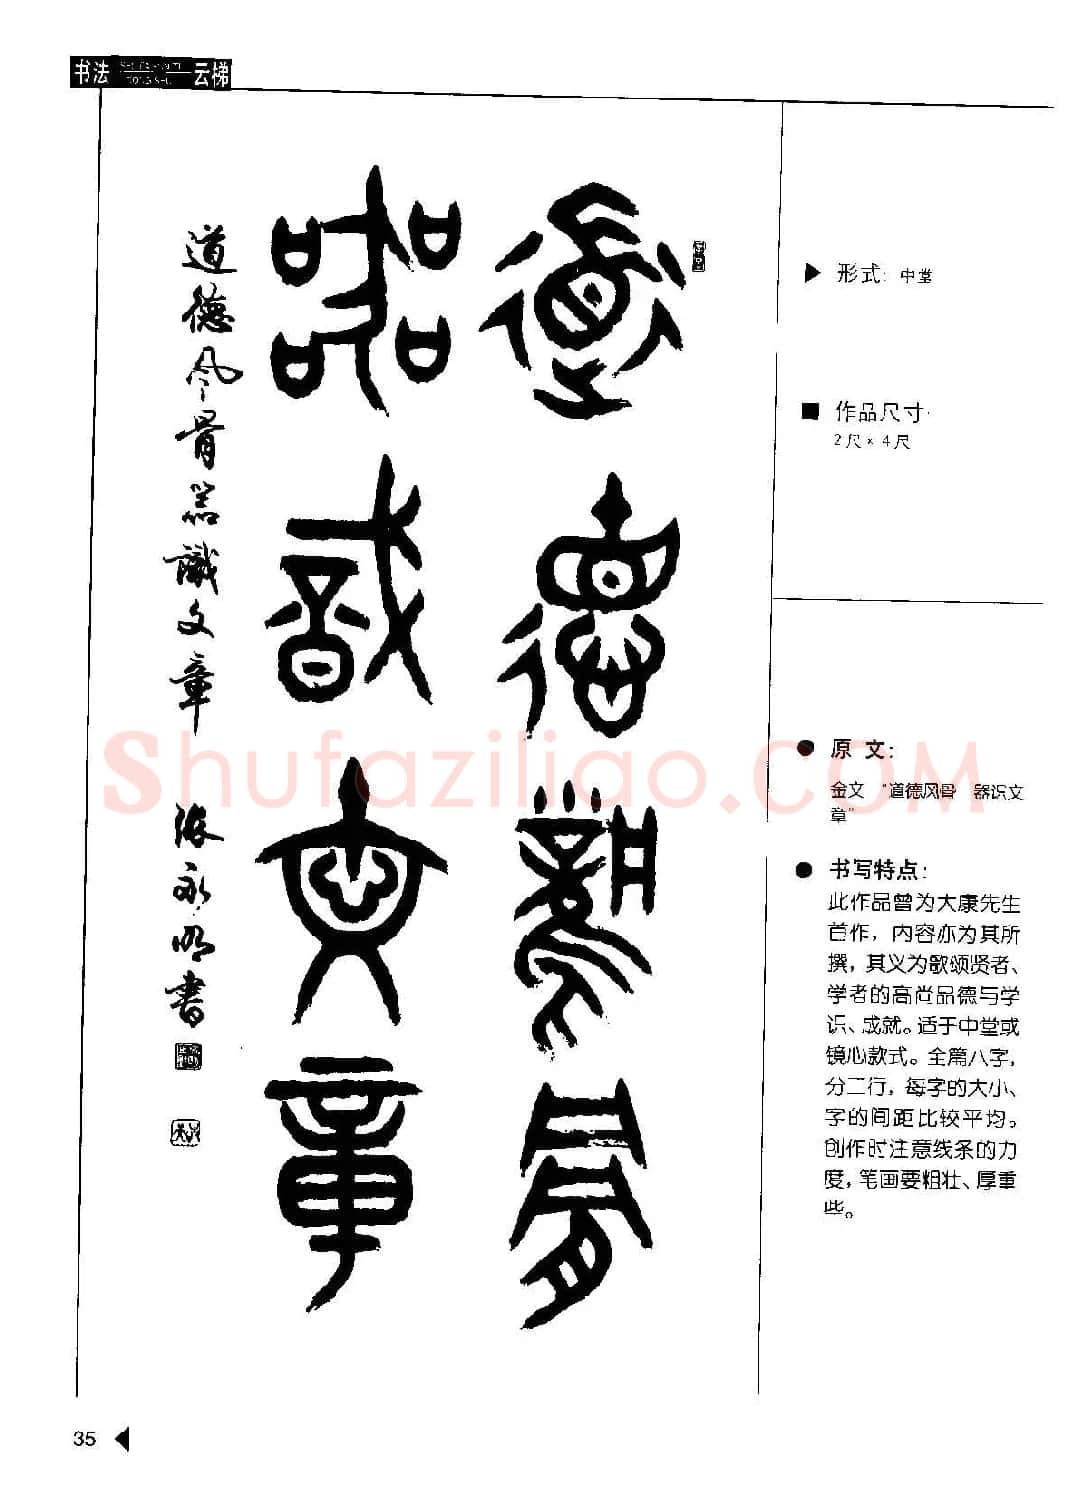 书法 云梯
道德风骨
器识文章
道德风骨器識文章 张永明書
形式: 中堂
作品尺寸:
2尺×4尺
原文:
金文 “道德风骨 器识文
章”
书写特点:
此作品曾为大康先生
首作, 内容亦为其所
撰, 其义为歌颂贤者、
学者的高尚品德与学
识、成就。适于中堂或
镜心款式。全篇八字,
分二行, 每字的大小、
字的间距比较平均。
创作时注意线条的力
度, 笔画要粗壮、厚重
些。
Shufaziliao.COM
35